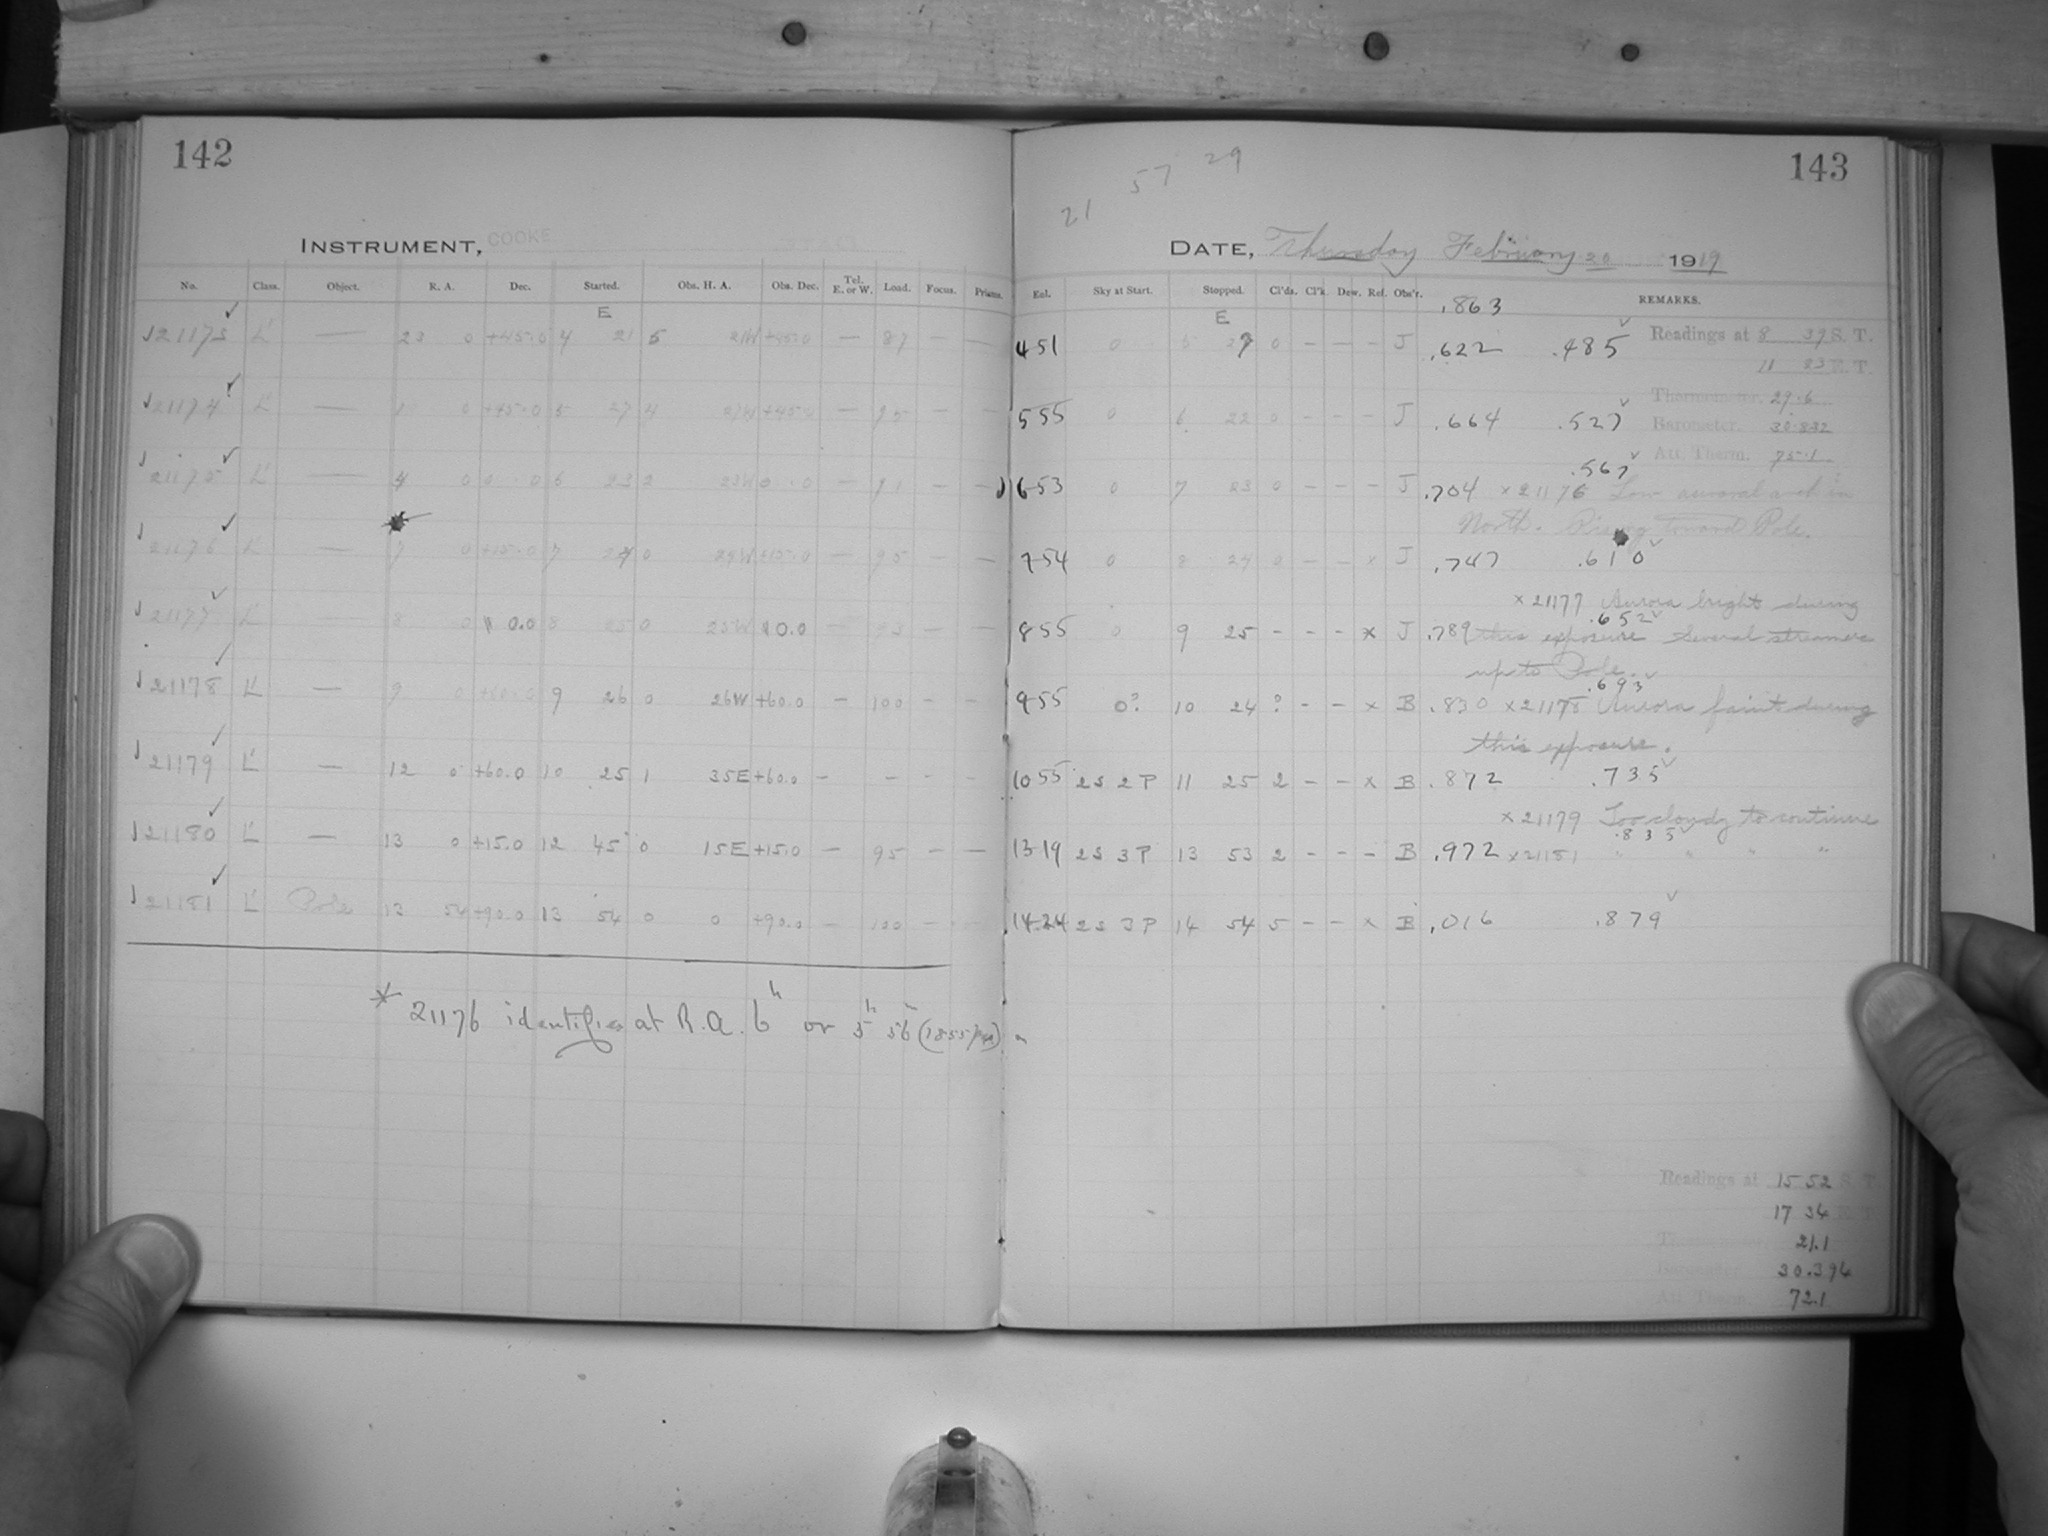 142
INSTRUMENT, COOKE
No. Class. Object. R. A. Dec. Started. Obs. H. A. Obs. Dec. Tel. E. or W. Load. Focus. Prisms.
E
21173 L' — 23 0 +45.0 4 21 5 21W +45.0 — 87 — —
21174 L' — 0 +45.0 5 27 4 27W +45.0 — 95 — —
21175 L' — 4 0 0 0 6 23 2 23W 0 0 — 91 — —
21176 L' — 7 0 +15.0 7 24 0 24W +15.0 — 95 — —
21177 L' 8 0 0.0 8 25 0 25W 0.0 — 93 — —
21178 L' — 9 0 +60.0 9 26 0 26W +60.0 — 100 — —
21179 L' — 12 0 +60.0 10 25 1 35E +60.0 — — — —
21180 L' — 13 0 +15.0 12 45 0 15E +15.0 — 95 — —
21181 L' Pole 13 54 +90.0 13 54 0 0 +90.0 — 100 — —
* 21176 identifies at R.A. 6h or 5h 56 (1855
21 57 29
143
DATE, Thursday February 20 1919
Eql. Sky at Start. Stopped. Cl'ds. Cl'k. Dew. Ref. Obs'r. .863 REMARKS.
E
4 51 0 5 0 — — — J .622 .485 Readings at 8 39 S. T.
11 E. T.
5 55 0 6 22 0 — — — J .664 .527 Thermometer. 29.6
Barometer.
Att. Therm. 75.1
6 53 0 7 23 0 — — — J .704 .567 × 21176 Low auroral arch in
North. Rising toward Pole.
7 54 0 8 24 0 — — × J .747 .610
× 21177 Aurora bright during
8 55 0 9 25 — — — × J .789 .652 this exposure Several streamers
up to Pole.
9 55 0? 10 24 ? — — × B .830 .693 × 21178 Aurora faint during
this exposure.
10 55 2S 2P 11 25 2 — — × B .872 .735
× 21179 Too cloudy to continue
13 19 2S 3P 13 53 2 — — — B .972 .835 × 21181 " " " "
14 24 2S 3P 14 54 5 — — × B .016 .879
Readings at 15 52 S. T.
17 34 E. T.
21.1
30.394
Att. Therm. 72.1